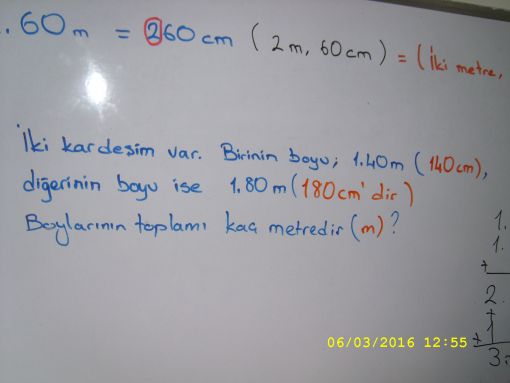 ..60m = 260cm (2m, 60cm) = (İki metre,
İki kardeşim var. Birinin boyu; 1.40m (140cm),
diğerinin boyu ise 1.80m (180cm'dir)
Boylarının toplamı kaç metredir (m)?
1.
1.
+
2.
+
1
+
3.
06/03/2016 12:55